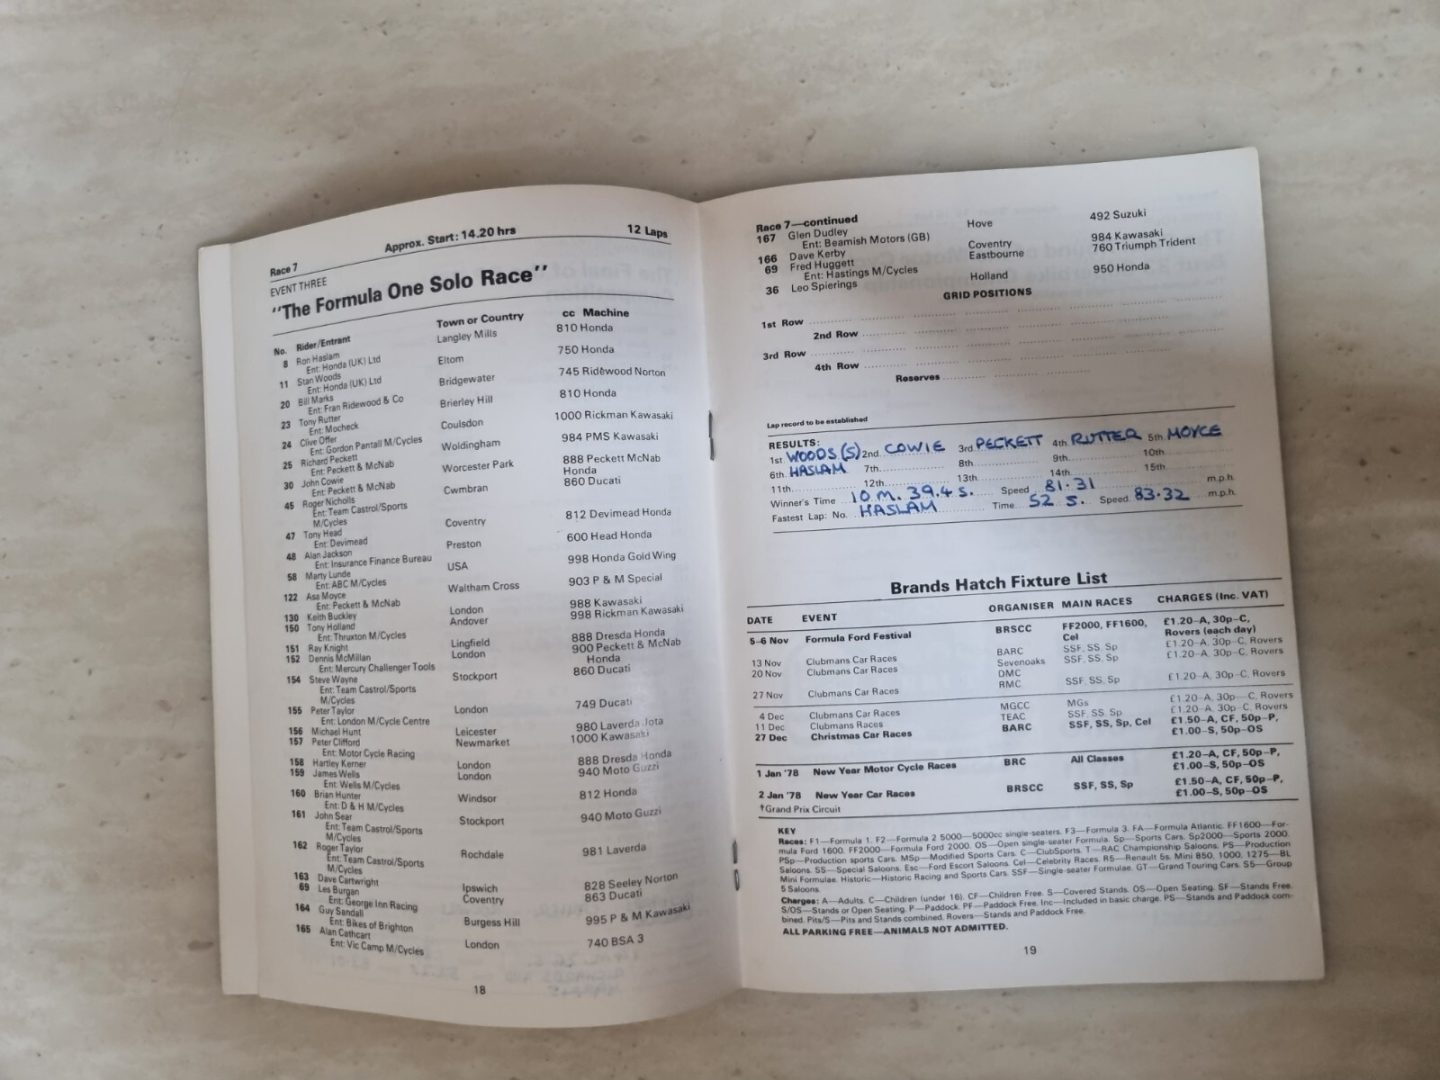 Race 7 Approx. Start: 14.20 hrs 12 Laps
EVENT THREE
"The Formula One Solo Race"
No. Rider/Entrant Town or Country cc Machine
8 Ron Haslam Langley Mills 810 Honda
Ent: Honda (UK) Ltd
11 Stan Woods Eltom 750 Honda
Ent: Honda (UK) Ltd
20 Bill Marks Bridgewater 745 Ridewood Norton
Ent: Fran Ridewood & Co
23 Tony Rutter Brierley Hill 810 Honda
Ent: Mocheck
24 Clive Offer Coulsdon 1000 Rickman Kawasaki
Ent: Gordon Pantall M/Cycles
25 Richard Peckett Woldingham 984 PMS Kawasaki
Ent: Peckett & McNab
30 John Cowie Worcester Park 888 Peckett McNab
Ent: Peckett & McNab Honda
45 Roger Nicholls Cwmbran 860 Ducati
Ent: Team Castrol/Sports
M/Cycles
47 Tony Head Coventry 812 Devimead Honda
Ent: Devimead
48 Alan Jackson Preston 600 Head Honda
Ent: Insurance Finance Bureau
58 Marty Lunde USA 998 Honda Gold Wing
Ent: ABC M/Cycles
122 Asa Moyce Waltham Cross 903 P & M Special
Ent: Peckett & McNab
130 Keith Buckley London 988 Kawasaki
150 Tony Holland Andover 998 Rickman Kawasaki
Ent: Thruxton M/Cycles
151 Ray Knight Lingfield 888 Dresda Honda
152 Dennis McMillan London 900 Peckett & McNab
Ent: Mercury Challenger Tools Honda
154 Steve Wayne Stockport 860 Ducati
Ent: Team Castrol/Sports
M/Cycles
155 Peter Taylor London 749 Ducati
Ent: London M/Cycle Centre
156 Michael Hunt Leicester 980 Laverda Jota
157 Peter Clifford Newmarket 1000 Kawasaki
Ent: Motor Cycle Racing
158 Hartley Kerner London 888 Dresda Honda
159 James Wells London 940 Moto Guzzi
Ent: Wells M/Cycles
160 Brian Hunter Windsor 812 Honda
Ent: D & H M/Cycles
161 John Sear Stockport 940 Moto Guzzi
Ent: Team Castrol/Sports
M/Cycles
162 Roger Taylor Rochdale 981 Laverda
Ent: Team Castrol/Sports
M/Cycles
163 Dave Cartwright Ipswich 828 Seeley Norton
69 Les Burgan Coventry 863 Ducati
Ent: George Inn Racing
164 Guy Sandall Burgess Hill 995 P & M Kawasaki
Ent: Bikes of Brighton
165 Alan Cathcart London 740 BSA 3
Ent: Vic Camp M/Cycles
18
Race 7—continued
167 Glen Dudley Hove 492 Suzuki
Ent: Beamish Motors (GB)
166 Dave Kerby Coventry 984 Kawasaki
69 Fred Huggett Eastbourne 760 Triumph Trident
Ent: Hastings M/Cycles
36 Leo Spierings Holland 950 Honda
GRID POSITIONS
1st Row
2nd Row
3rd Row
4th Row
Reserves
Lap record to be established
RESULTS:
1st WOODS (S) 2nd COWIE 3rd PECKETT 4th RUTTER 5th MOYCE
6th HASLAM 7th 8th 9th 10th
11th 12th 13th 14th 15th
Winner's Time 10 M. 39.4 S. Speed 81.31 m.p.h.
Fastest Lap: No. HASLAM Time 52 S. Speed 83.32 m.p.h.
Brands Hatch Fixture List
DATE EVENT ORGANISER MAIN RACES CHARGES (Inc. VAT)
5-6 Nov Formula Ford Festival BRSCC FF2000, FF1600, £1.20-A, 30p-C,
Cel Rovers (each day)
13 Nov Clubmans Car Races BARC SSF, SS, Sp £1.20-A, 30p-C, Rovers
20 Nov Clubmans Car Races Sevenoaks SSF, SS, Sp £1.20-A, 30p-C, Rovers
DMC
27 Nov Clubmans Car Races RMC SSF, SS, Sp £1.20-A, 30p-C, Rovers
4 Dec Clubmans Car Races MGCC MGs £1.20-A, 30p-C, Rovers
11 Dec Clubmans Races TEAC SSF, SS, Sp £1.20-A, 30p-C, Rovers
27 Dec Christmas Car Races BARC SSF, SS, Sp, Cel £1.50-A, CF, 50p-P,
£1.00-S, 50p-OS
1 Jan '78 New Year Motor Cycle Races BRC All Classes £1.20-A, CF, 50p-P,
£1.00-S, 50p-OS
2 Jan '78 New Year Car Races BRSCC SSF, SS, Sp £1.50-A, CF, 50p-P,
£1.00-S, 50p-OS
†Grand Prix Circuit
KEY
Races: F1—Formula 1. F2—Formula 2 5000—5000cc single-seaters. F3—Formula 3. FA—Formula Atlantic. FF1600—For-
mula Ford 1600. FF2000—Formula Ford 2000. OS—Open single-seater Formula. Sp—Sports Cars. Sp2000—Sports 2000.
PSp—Production sports Cars. MSp—Modified Sports Cars. C—ClubSports. T—RAC Championship Saloons. PS—Production
Saloons. SS—Special Saloons. Esc—Ford Escort Saloons. Cel—Celebrity Races. R5—Renault 5s. Mini 850, 1000, 1275—BL
Mini Formulae. Historic—Historic Racing and Sports Cars. SSF—Single-seater Formulae. GT—Grand Touring Cars. S5—Group
5 Saloons.
Charges: A—Adults. C—Children (under 16). CF—Children Free. S—Covered Stands. OS—Open Seating. SF—Stands Free.
S/OS—Stands or Open Seating. P—Paddock. PF—Paddock Free. Inc—Included in basic charge. PS—Stands and Paddock com-
bined. Pits/S—Pits and Stands combined. Rovers—Stands and Paddock Free.
ALL PARKING FREE—ANIMALS NOT ADMITTED.
19